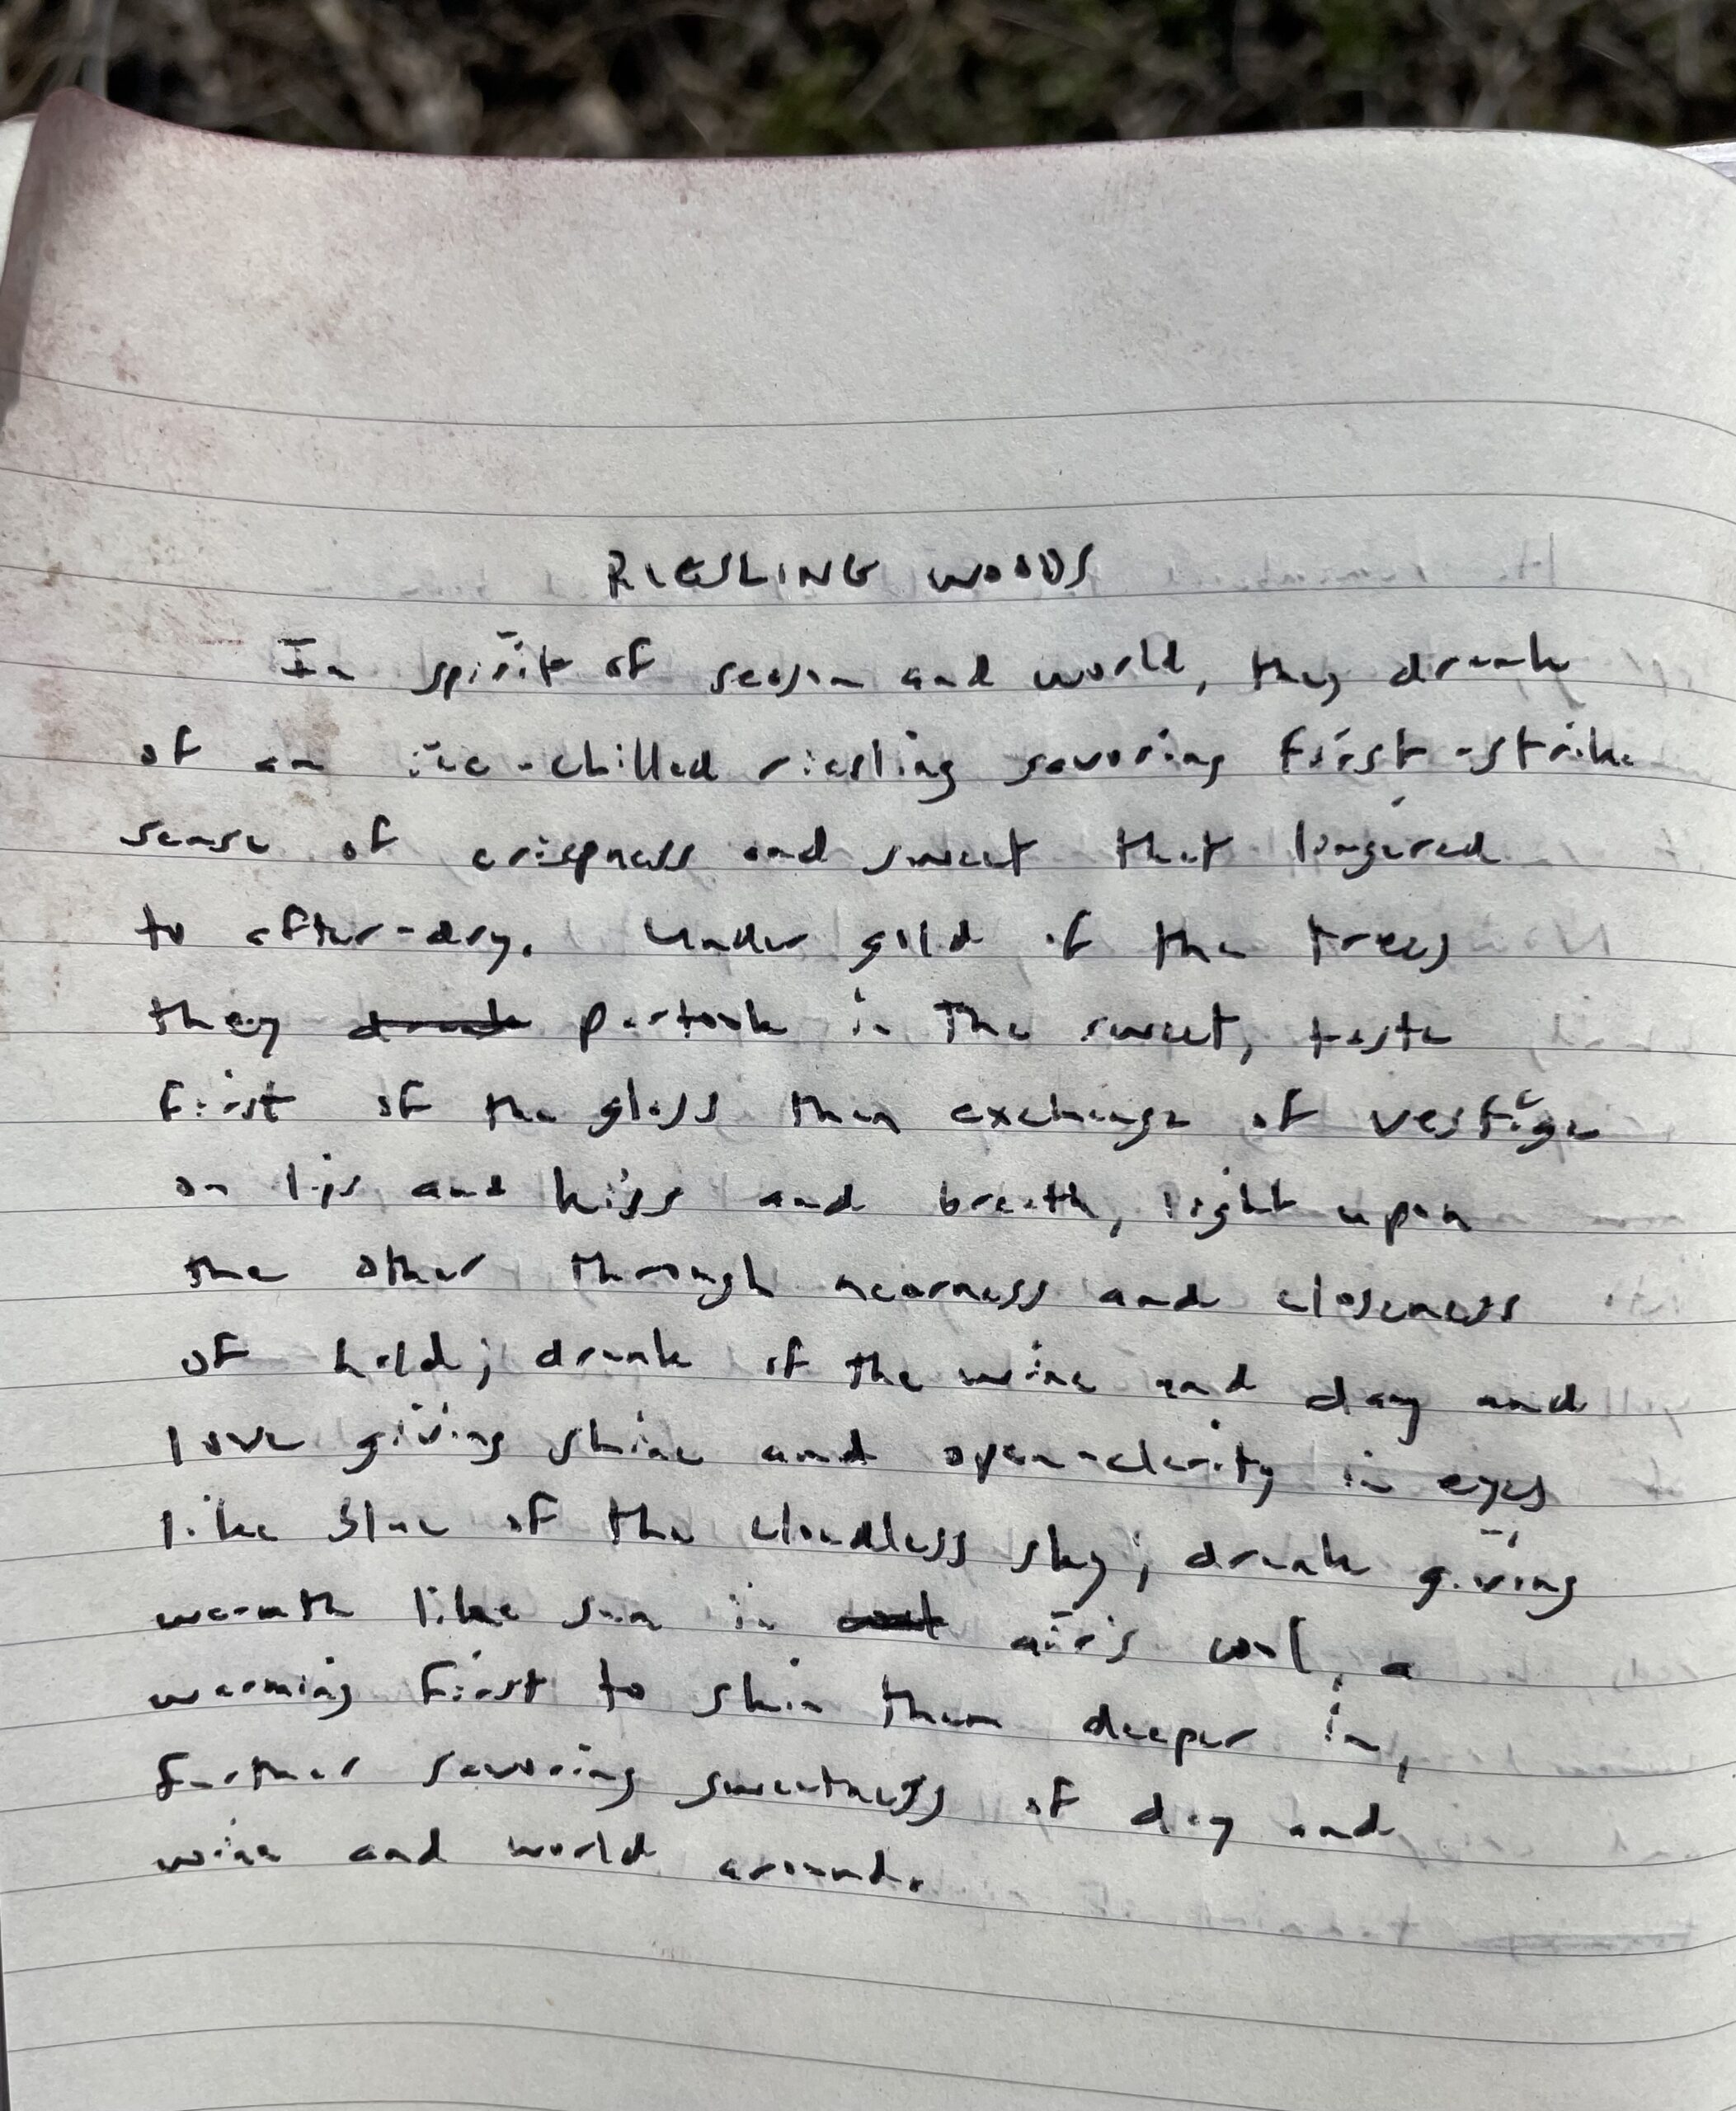 RIESLING WOODS
In spirit of season and world, they drank
of an ice-chilled riesling savoring first-strike
sense of crispness and sweet that lingered
to after-dry. Under gold of the trees
they drank partook in the sweet, taste
first of the glass then exchange of vestige
on lips and kiss and breath, light upon
the other through nearness and closeness
of hold; drank of the wine and day and
love giving shine and open-clarity in eyes
like blue of the cloudless sky; drank giving
warmth like sun in air's cool, a
warming first to skin then deeper in,
further savoring sweetness of day and
wine and world around.